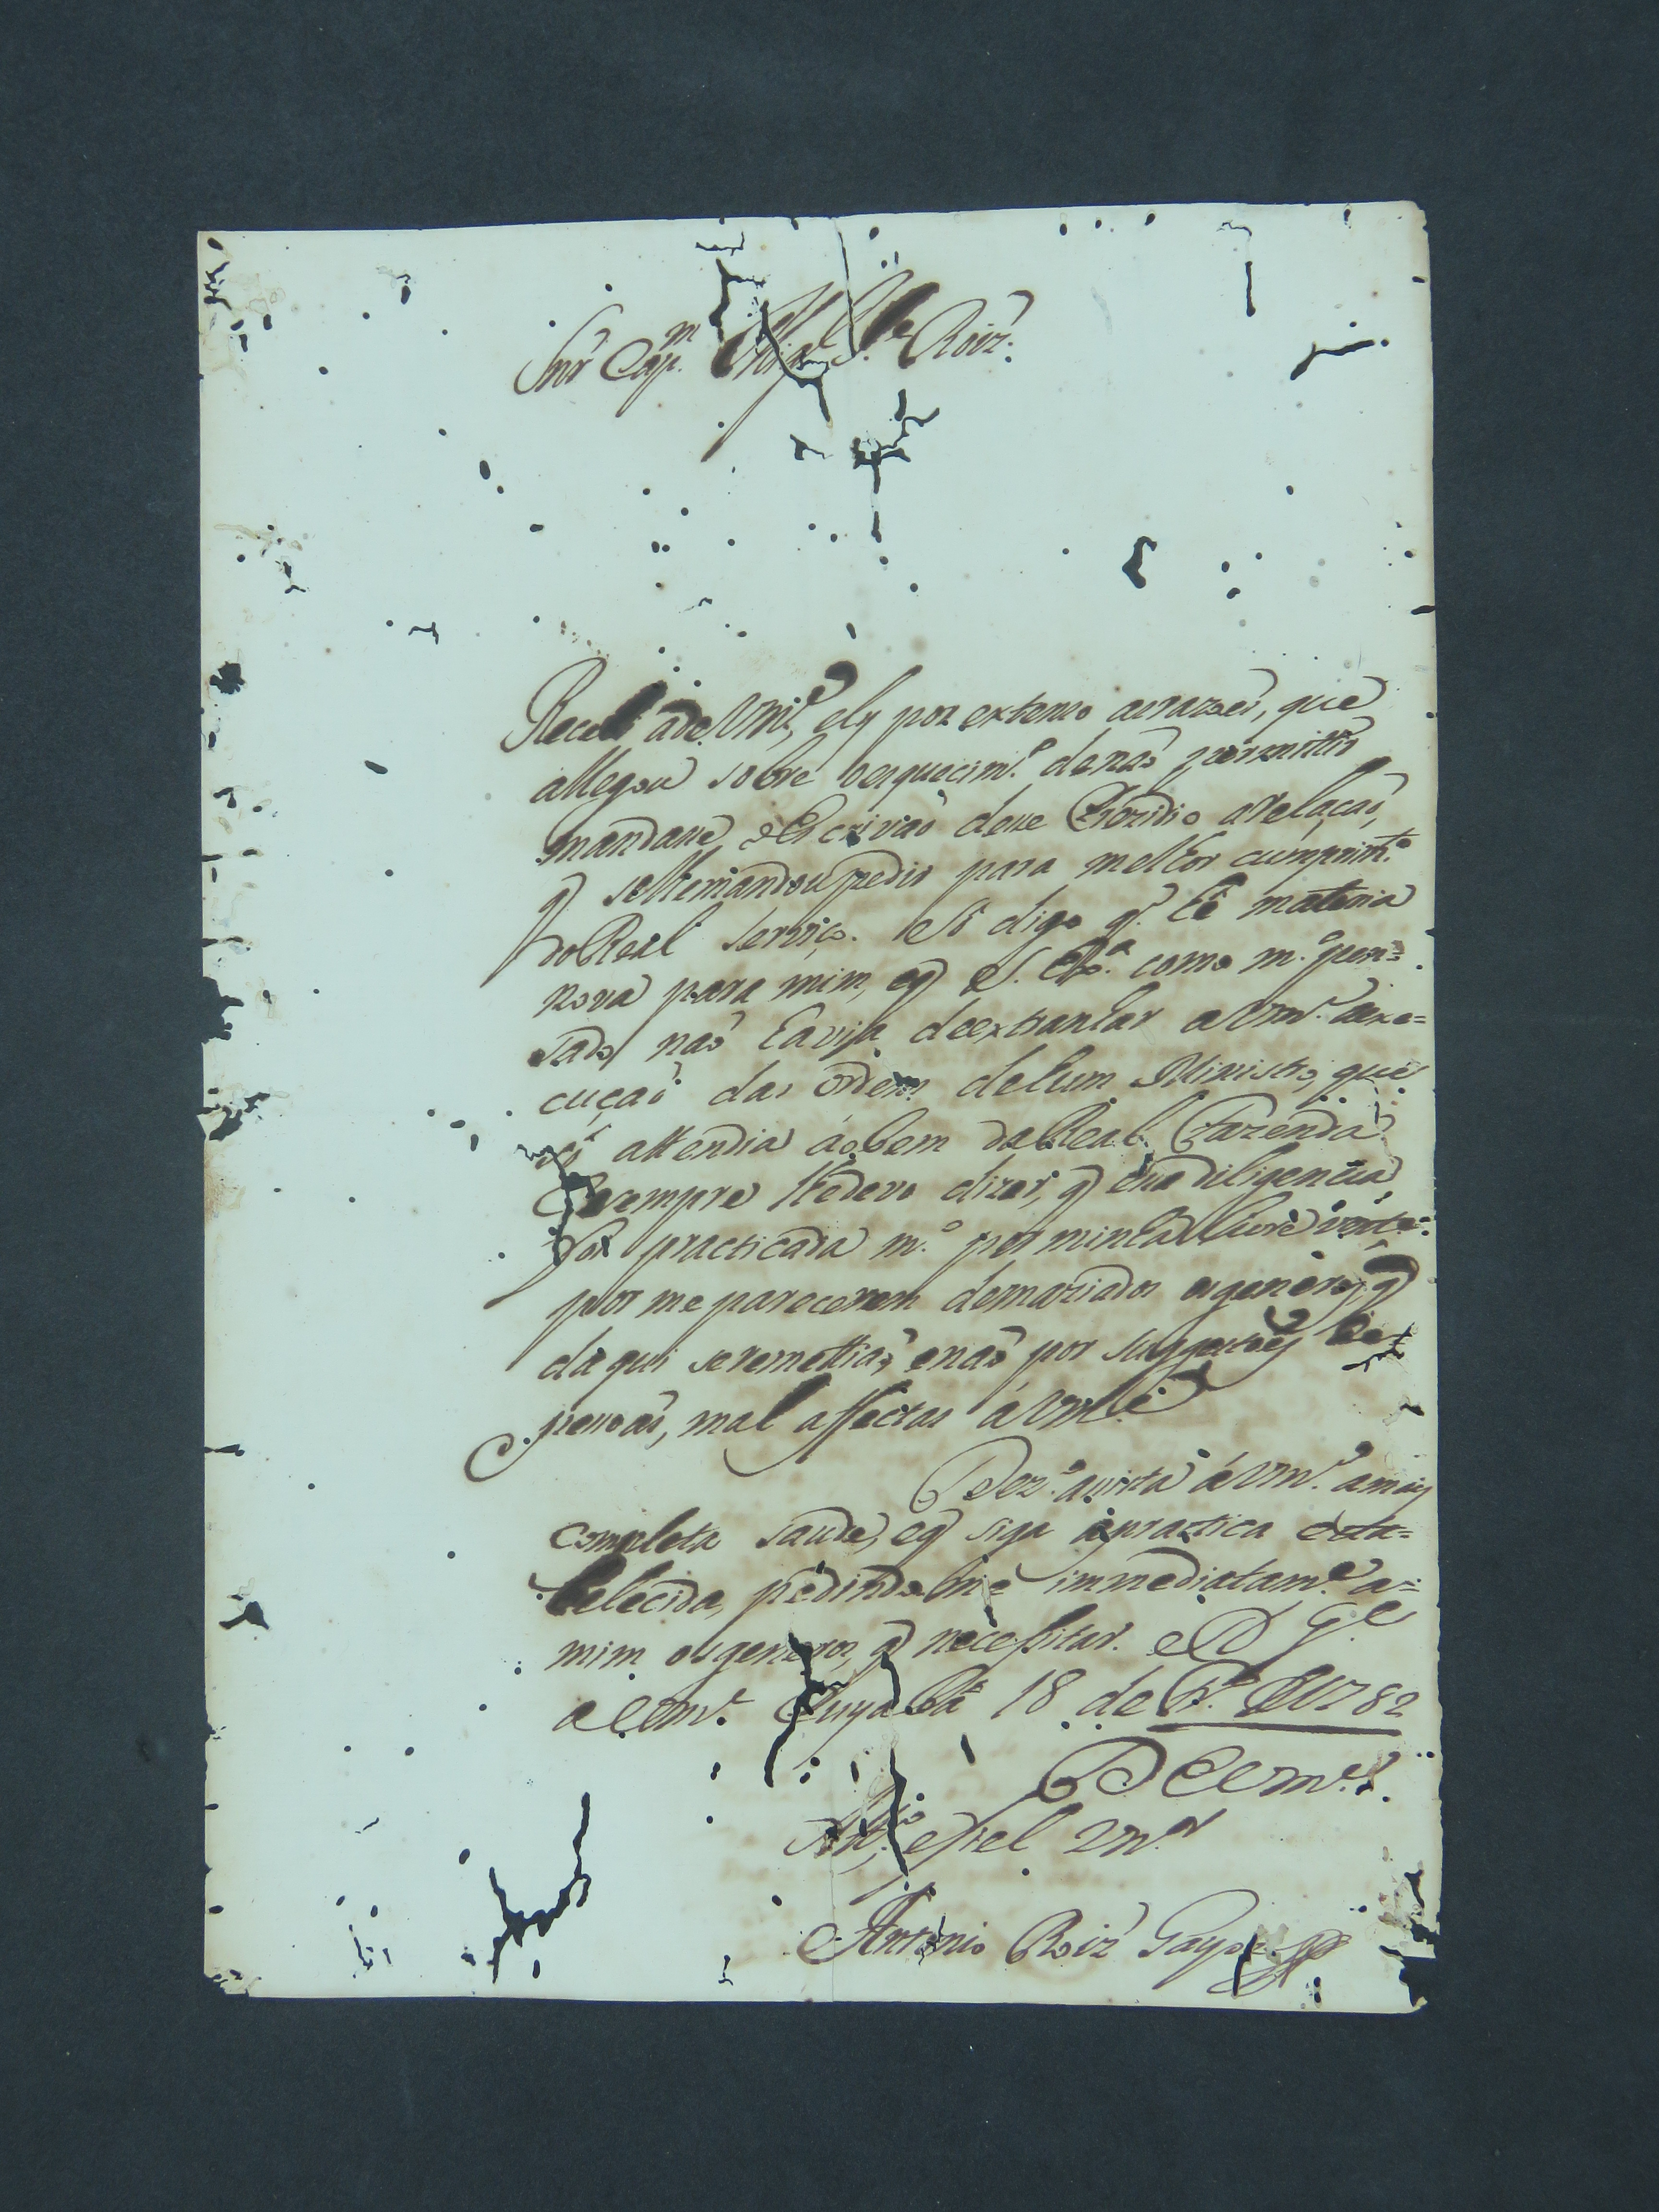 Snr Cap.m Roiz
Recebi a de Vm.ce, e ly por extenso as razoes, que
allegou sobre o esquecim.to de naõ permittir
mandasse o Escrivaõ desse Prezidio a Relaçaõ,
q se lhe mandou pedir para melhor cumprim.to
do Real serviço. Só digo q. he materia
nova para mim, e q S. Ex.a como m.to pon-
sado, naõ havia de extranhar a Vm.ce a exe-
cuçaõ das ordens de hum Ministro, que
só attendia ao bem da Real Fazenda
E sempre lhe devo dizer, q essa diligencia
foi practicada m.to por minha livre vont.e
por me parecerem demaziados os generos, q
da qui se remettiaõ, e naõ por suggestoes de
pessoas, mal affectas á Vm.ce
Dez.o a vista á Vm.ce a mais
completa saude, e q siga a practica esta-
belecida, pedindo me immediatam.e a
mim os generos, q necessitar. D G.e
a Vm.ce Cuyabá 18 de 1782
D Vm.ce
e fiel
Antonio Roiz Gayozo